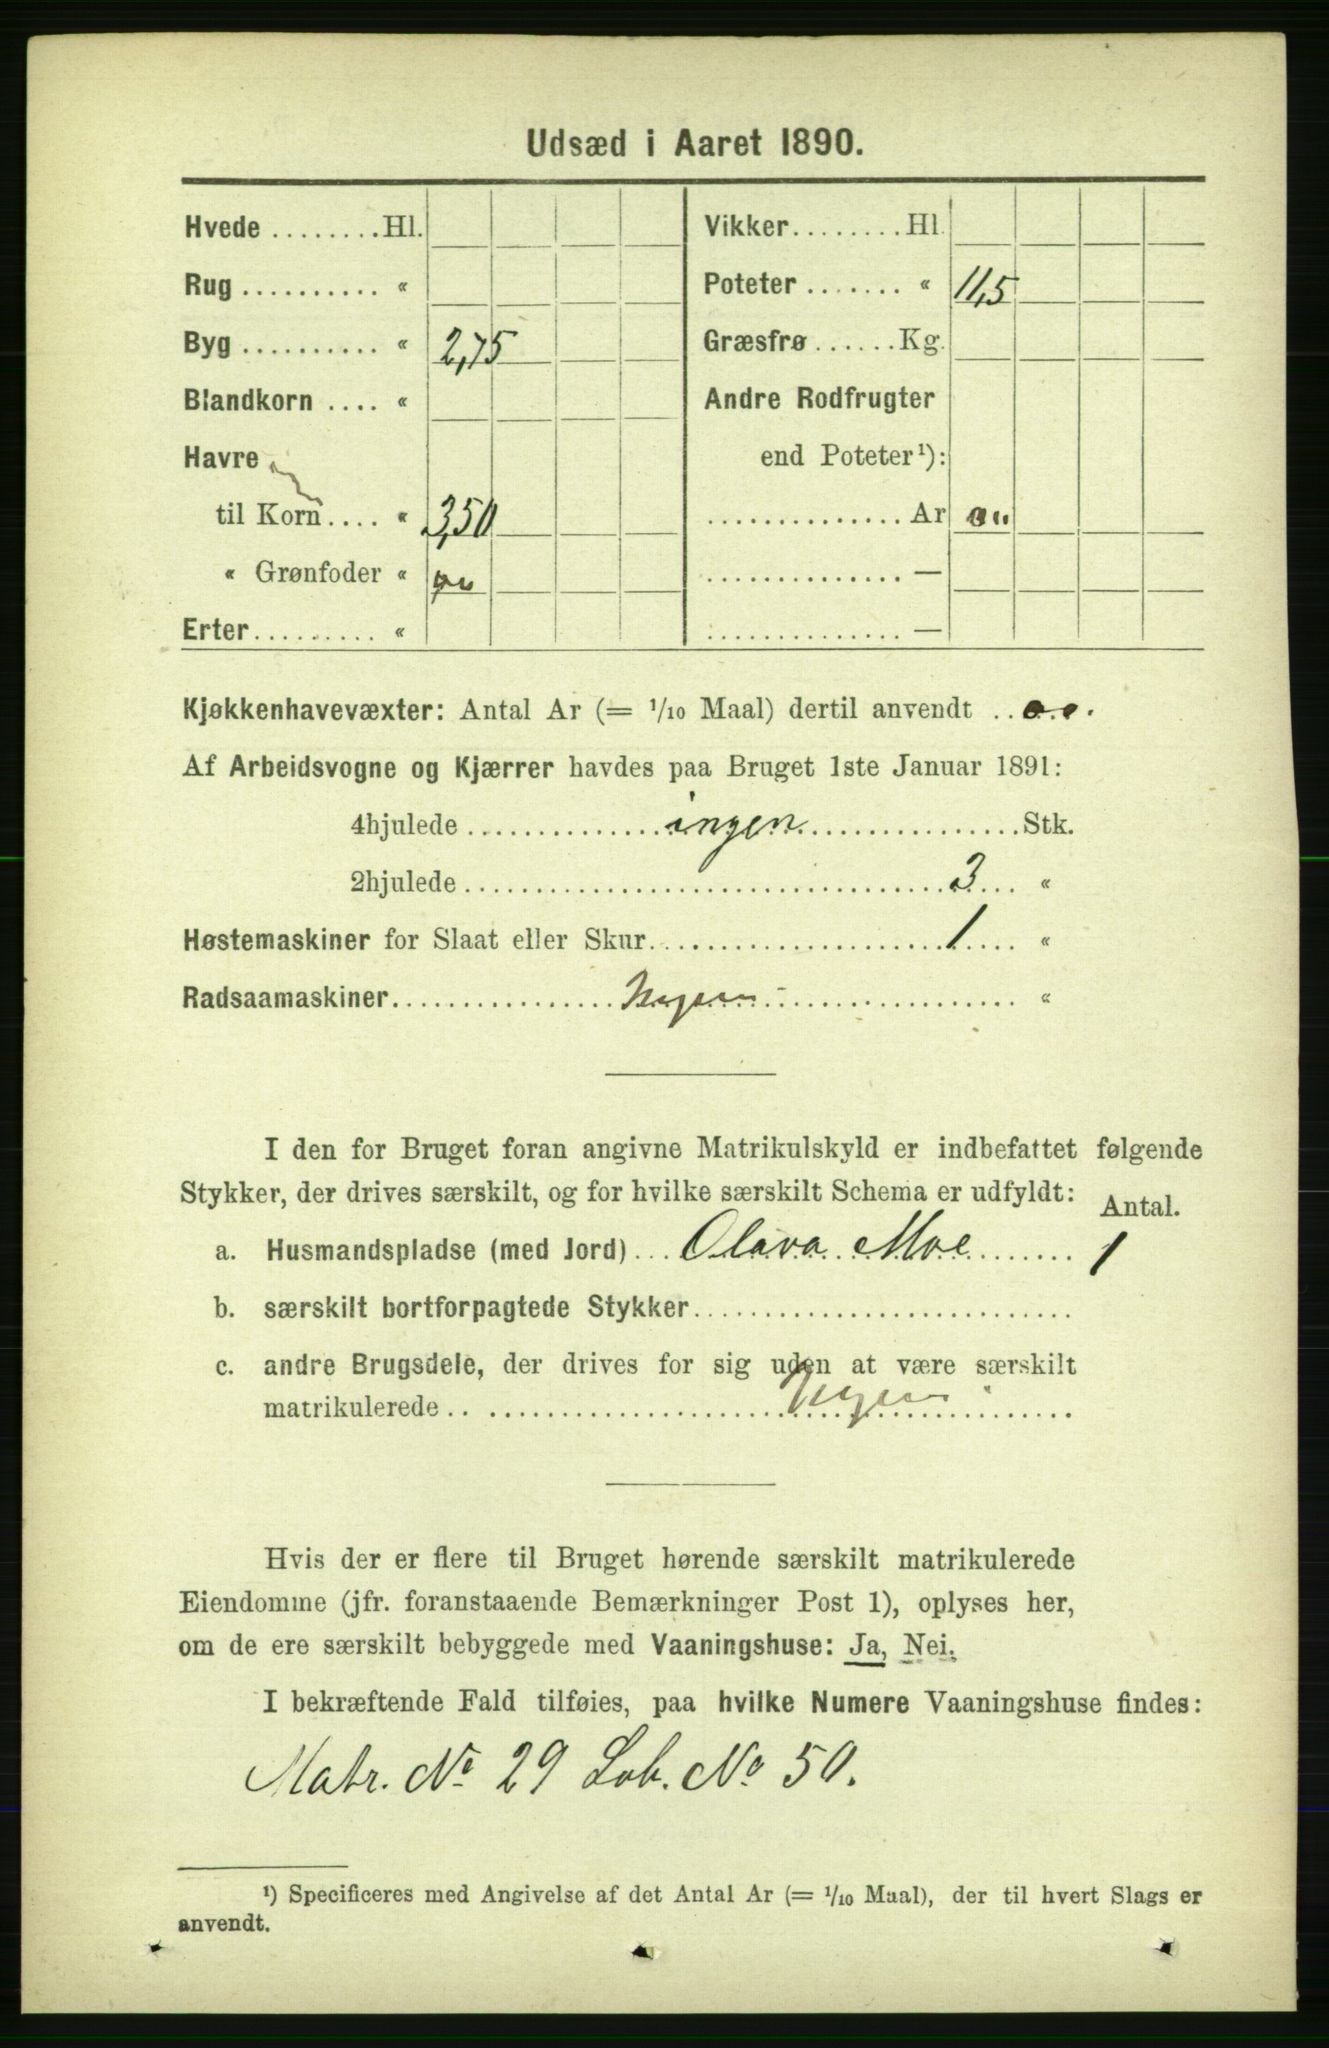 Udsæd i Aaret 1890.
Hvede ........Hl.
Rug .......... «
Byg .......... « 2,75
Blandkorn .... «
Havre
til Korn.... « 3,50
« Grønfoder «
Erter.......... «
Vikker........Hl.
Poteter ....... « 11,5
Græsfrø......Kg.
Andre Rodfrugter
end Poteter¹):
.............. Ar
.............. —
.............. —
Kjøkkenhavevæxter: Antal Ar (= 1/10 Maal) dertil anvendt ..
Af Arbeidsvogne og Kjærrer havdes paa Bruget 1ste Januar 1891:
4hjulede .............. ingen ................Stk.
2hjulede .................................. 3 .... «
Høstemaskiner for Slaat eller Skur...................... 1 .... «
Radsaamaskiner................ Ingen .................... «
I den for Bruget foran angivne Matrikulskyld er indbefattet følgende
Stykker, der drives særskilt, og for hvilke særskilt Schema er udfyldt:
Antal.
a. Husmandspladse (med Jord)... Olava Moe ....... 1
b. særskilt bortforpagtede Stykker............................
c. andre Brugsdele, der drives for sig uden at være særskilt
matrikulerede .. .................... Ingen ............
Hvis der er flere til Bruget hørende særskilt matrikulerede
Eiendomme (jfr. foranstaaende Bemærkninger Post 1), oplyses her,
om de ere særskilt bebyggede med Vaaningshuse: Ja, Nei.
I bekræftende Fald tilføies, paa hvilke Numere Vaaningshuse findes:
Matr. No 29 Lob. No 50.
¹) Specificeres med Angivelse af det Antal Ar (= 1/10 Maal), der til hvert Slags er
anvendt.